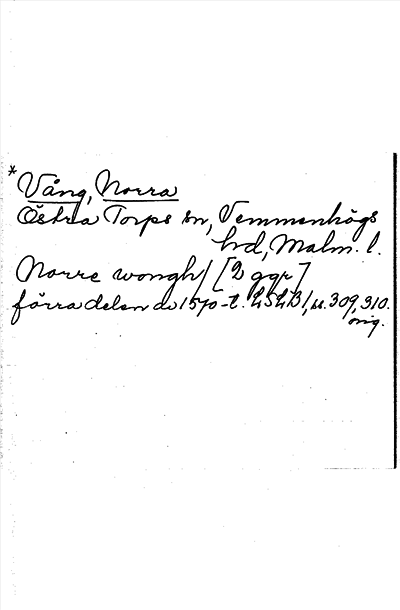 * Vång, Norra
Östra Torps sn, Vemmenhögs
hd, Malm. l.
Norre wongh/ [2 ggr]
förra delen av 1570-t. LSLB 1, s. 309, 310.
orig.